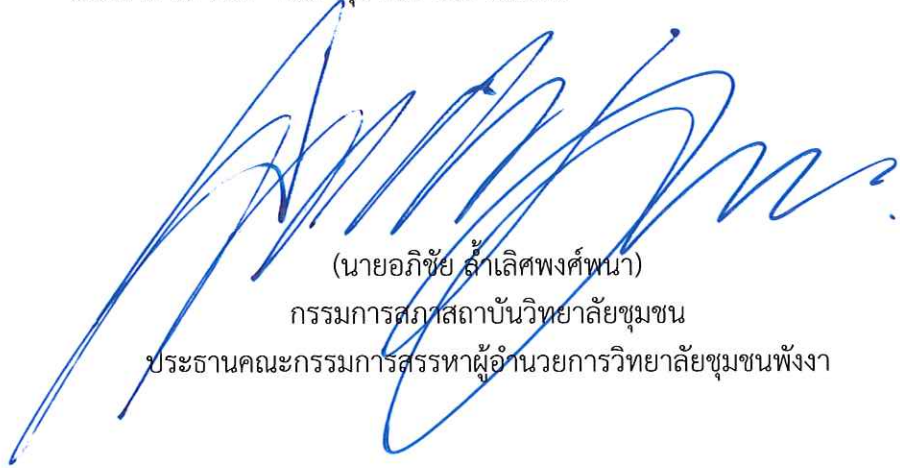 (นายอภิชัย ล้ำเลิศพงศ์พนา)
กรรมการสภาสถาบันวิทยาลัยชุมชน
ประธานคณะกรรมการสรรหาผู้อำนวยการวิทยาลัยชุมชนพังงา